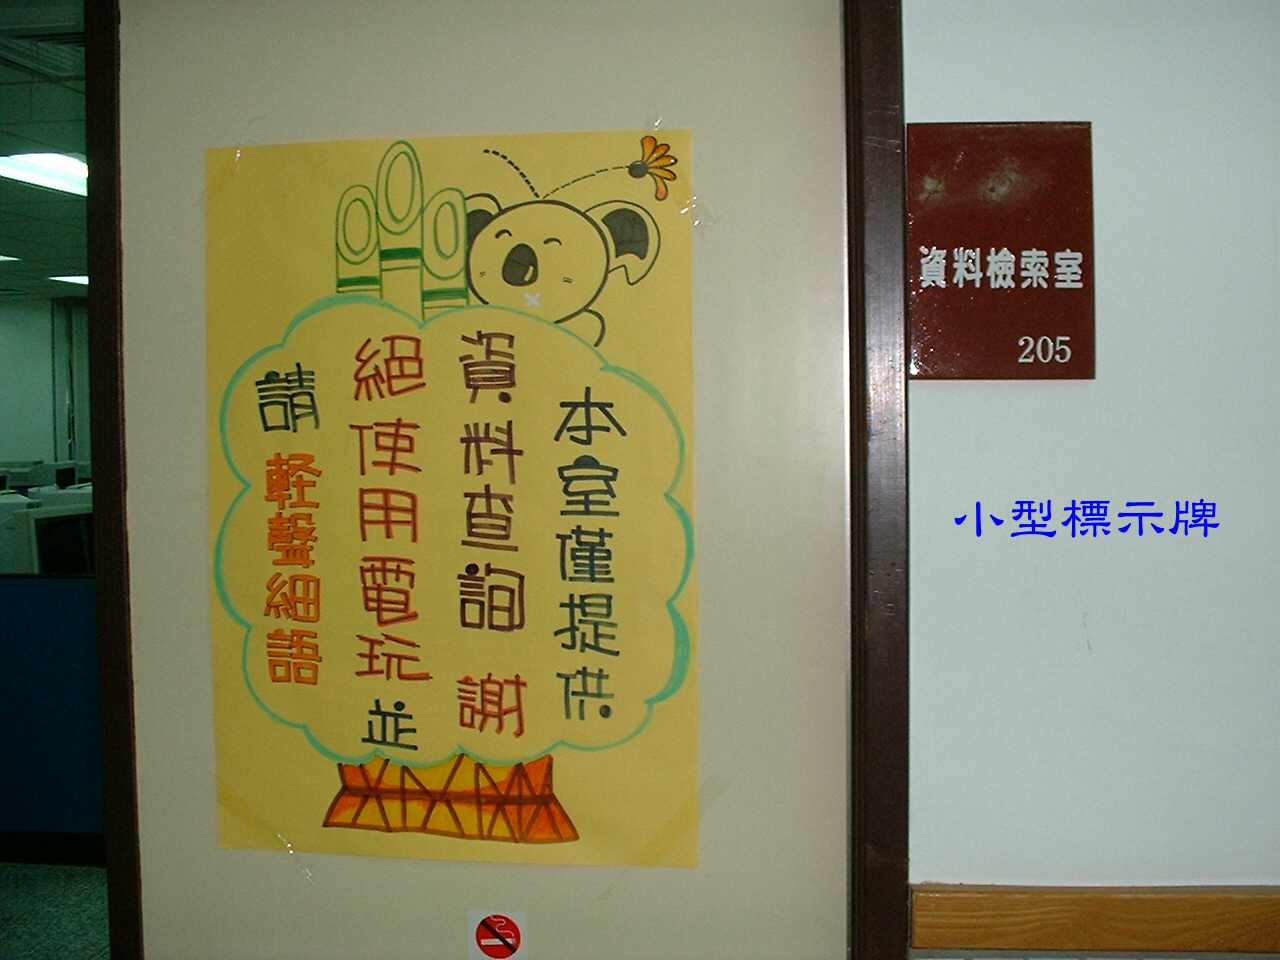 本室僅提供
資料查詢 謝
絕使用電玩並
請輕聲細語
資料檢索室
205
小型標示牌